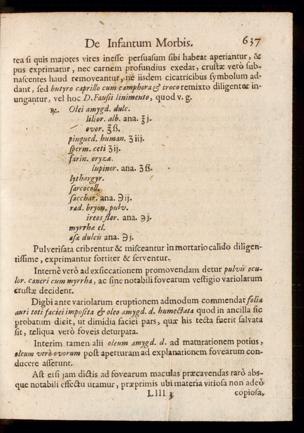 De Infantum Morbis. 637
tea si quis majores vires inesse persuasum sibi habeat aperiantur, &
pus exprimatur, nec carnem profundius exedat, crustæ verò sub-
nascentes haud removeantur, ne iisdem cicatricibus symbolum ad-
dant, sed butyro caprillo cum camphora & croco remixto diligenter in-
ungantur, vel hoc D. Fausii linimento, quod v. g.
℞. Olei amygd. dulc.
lilior. alb. ana. ℥j.
ovor. ℥ß.
pingued. human. ℥iij.
sperm. ceti ℥ij.
farin. oryzæ.
lupinor. ana. ℥ß.
lythargyr.
sarcocoll.
sacchar. ana. ℈ij.
rad. bryon. pulv.
ireos flor. ana. ℈j.
myrrhæ el.
asæ dulcis ana. ℈j.
Pulverisata cribrentur & misceantur in mortario calido diligen-
tissime, exprimantur fortiter & serventur.
Internè verò ad exsiccationem promovendam detur pulvis ocu-
lor. cancri cum myrrha, ac sine notabili fovearum vestigio variolarum
crustæ decident.
Digbi ante variolarum eruptionem admodum commendat folia
auri toti faciei imposita & oleo amygd. d. humectata quod in ancilla sic
probatum dicit, ut dimidia faciei pars, quæ his tecta fuerit salvata
sit, reliqua verò foveis deturpata.
Interim tamen alii oleum amygd. d. ad maturationem potius,
oleum verò ovorum post aperturam ad explanationem fovearum con-
ducere asserunt.
Ast etsi jam dictis ad fovearum maculas præcavendas rarò abs-
que notabili effectu utamur, præprimis ubi materia vitiosa non adeò
Llll 3 copiosa,